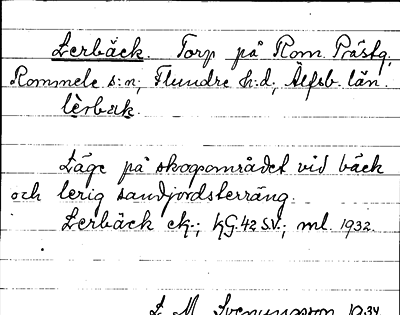 Lerbäck. Torp på Rom. Prästg.
Rommele s:n; Flundre h:d; Älfsb. län.
lèrbak.
Läge på skogområdet vid bäck
och lerig sandjordsterräng.
Lerbäck ek.; kG. 42 S.V.; ml. 1932.
L M Svenungsson 1934